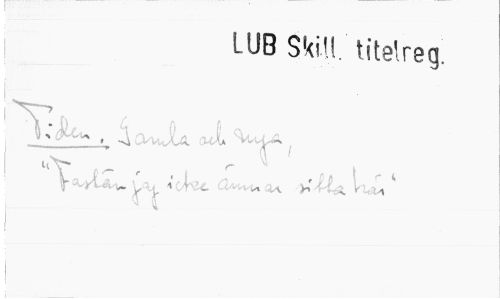 LUB Skill. titelreg.
Tiden. Gamla och nya,
"Fastän jag icke ämnar sitta här"